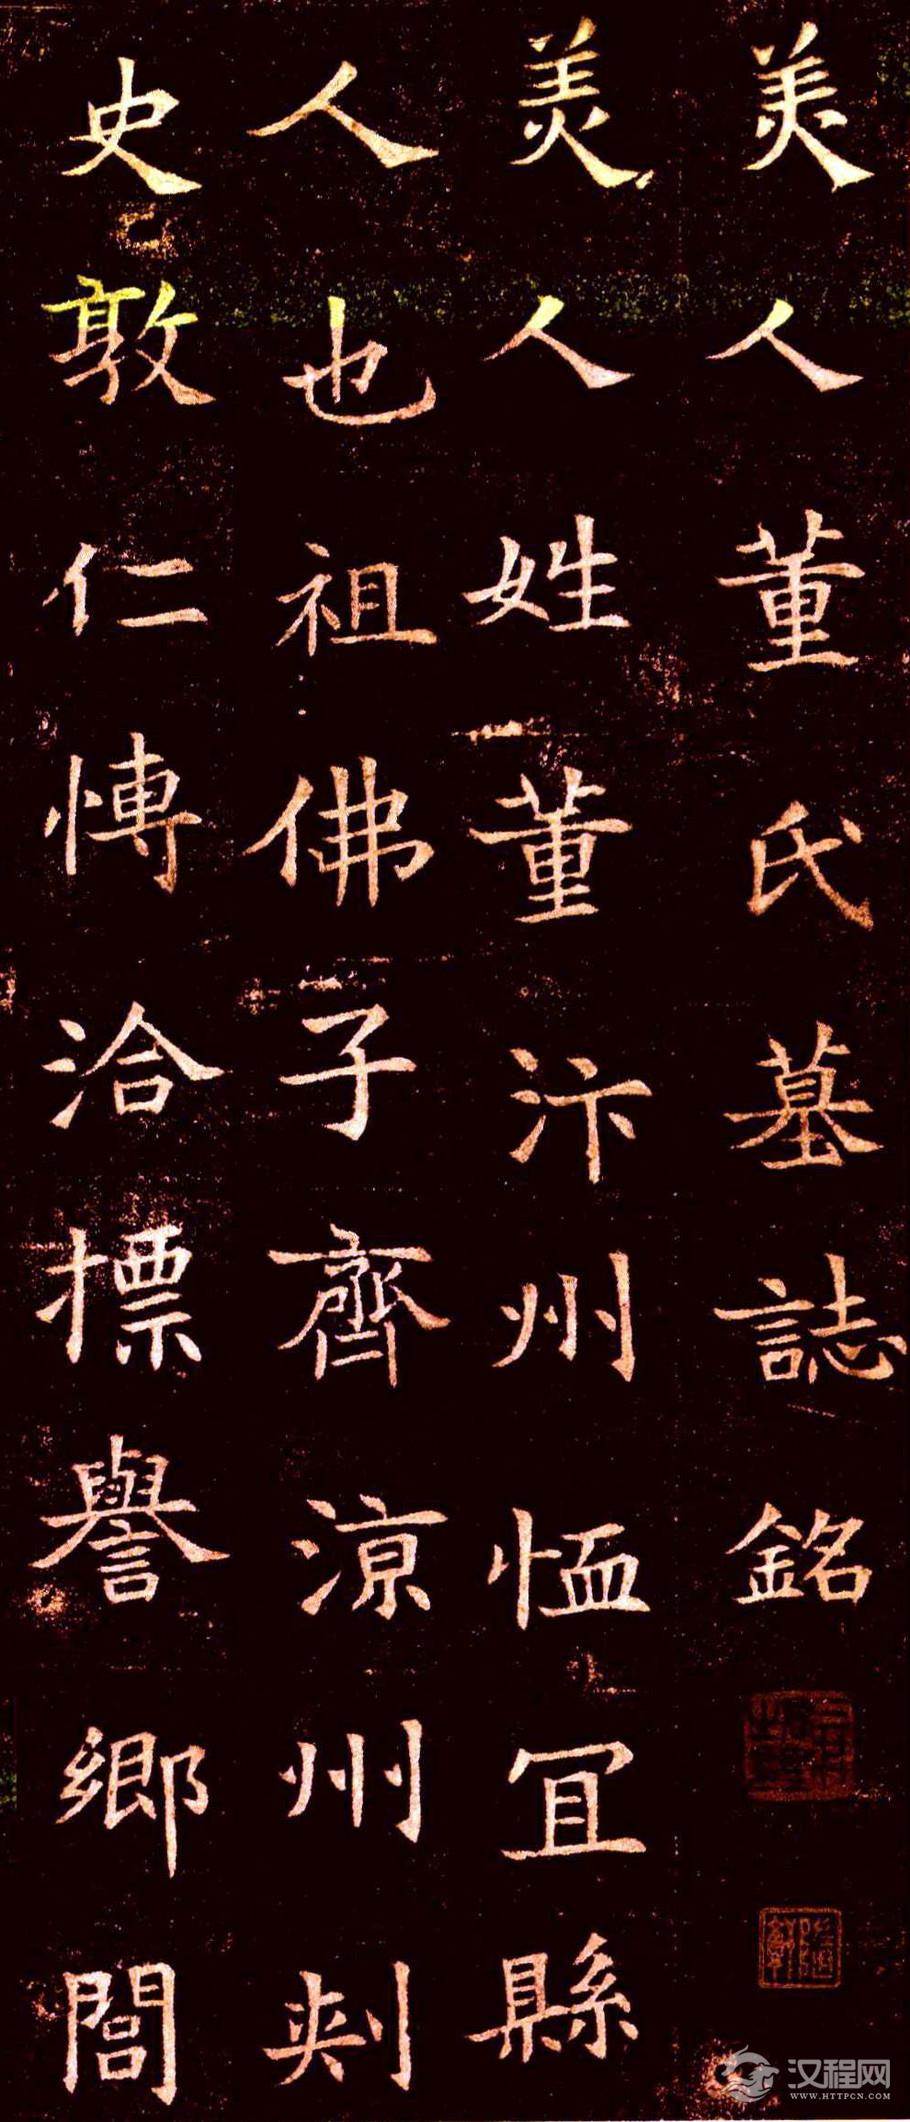 美人董氏墓誌銘
美人姓董汴州恤冝縣
人也祖佛子齊涼州刾
史敦仁愽洽摽譽鄉閭
汉程网
WWW.HTTPCN.COM